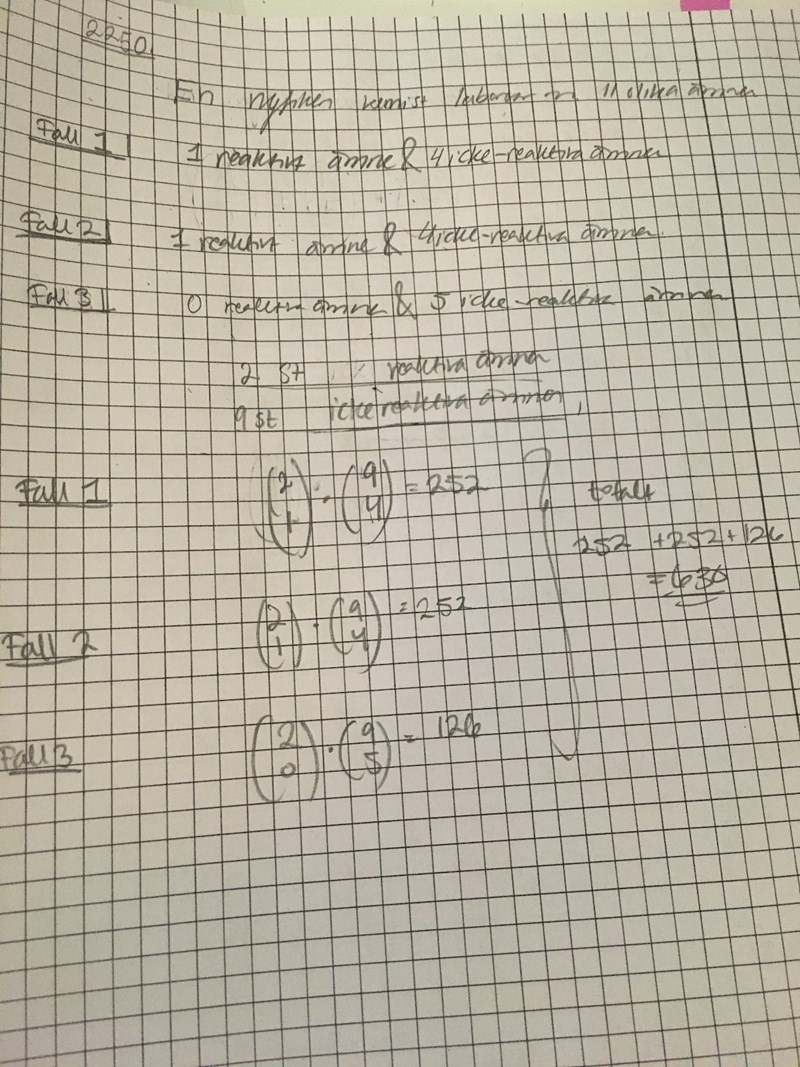 2250
En nyfiken kemist laborerar 11 olika ämnen
Fall 1 1 reaktivt ämne & 4 icke-reaktiva ämnen
Fall 2 1 reaktivt ämne & 4 icke-reaktiva ämnen.
Fall 3 0 reaktiva ämne & 5 icke-reaktiva ämnen
2 st reaktiva ämnen
9 st icke reaktiva ämnen,
Fall 1 (2 1) · (9 4) = 252 totalt
252 + 252 + 126
= 630
Fall 2 (2 1) · (9 4) = 252
Fall 3 (2 0) · (9 5) = 126